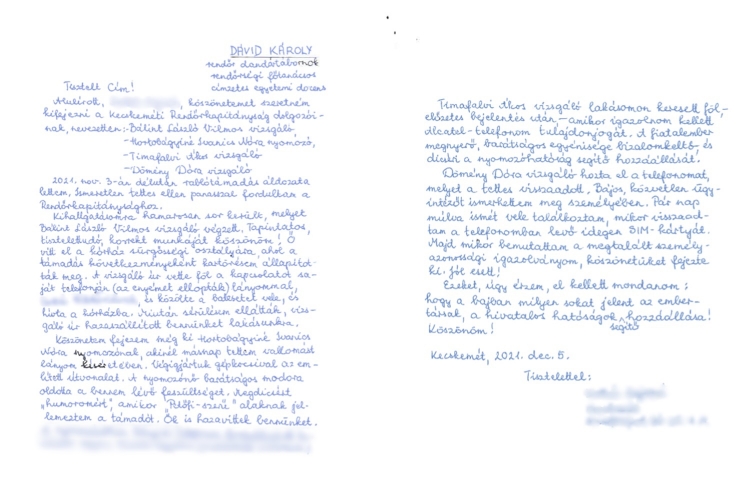 DÁVID KÁROLY
rendőr dandártábornok
rendőrségi főtanácsos
címzetes egyetemi docens
Tisztelt Cím!
Alulírott, köszönetemet szeretném
kifejezni a Kecskeméti Rendőrkapitányság dolgozói-
nak, nevezetten:-Bálint László Vilmos vizsgáló,
-Hortobágyiné Ivanics Nóra nyomozó,
-Timafalvi Ákos vizsgáló
-Dömény Dóra vizsgáló
2021. nov. 3-án délután rablótámadás áldozata
lettem, ismeretlen tettes ellen panasszal fordultam a
Rendőrkapitánysághoz.
Kihallgatásomra hamarosan sor került, melyet
Bálint László Vilmos vizsgáló végzett. Tapintatos,
tisztelettudó, korrekt munkáját köszönöm! Ő
vitt el a kórház sürgősségi osztályára, ahol a
támadás következményeként kartörésem állapítot-
ták meg. A vizsgáló úr vette föl a kapcsolatot sa-
ját telefonján (az enyémet ellopták) lányommal,
és közölte a balesetet vele, és
hívta a kórházba. Miután sérülésem ellátták, vizs-
gáló úr hazaszállított bennünket lakásunkra.
Köszönetem fejezem még ki Hortobágyiné Ivanics
Nóra nyomozónak, akinél másnap tettem vallomást
lányom kíséretében. Végigjártuk gépkocsival az em-
lített útvonalat. A nyomozónő barátságos modora
oldotta a bennem lévő feszültséget. Megdícsért
„humoromért", amikor "Petőfi-szerű" alaknak jel-
lemeztem a támadót. Ők is hazavittek bennünket.
Timafalvi Ákos vizsgáló lakásomon keresett föl,
előzetes bejelentés után, – amikor igazolnom kellett
Alcatel-telefonom tulajdonjogát. A fiatalember
megnyerő, barátságos egyénisége bizalomkeltő, és
dícséri a nyomozóhatóság segítő hozzáállását.
Dömény Dóra vizsgáló hozta el a telefonomat,
melyet a tettes visszaadott. Bájos, közvetlen ügy-
intézőt ismerhettem meg személyében. Pár nap
múlva ismét vele találkoztam, mikor visszaad-
tam a telefonomban levő idegen SIM-kártyát.
Majd mikor bemutattam a megtalált személy-
azonossági igazolványom, köszönetüket fejezte
ki. Jól esett!
Ezeket, úgy érzem, el kellett mondanom:
hogy a bajban milyen sokat jelent az ember-
társak, a hivatalos hatóságok segítő hozzáállása!
Köszönöm!
Kecskemét, 2021. dec. 5.
Tisztelettel: